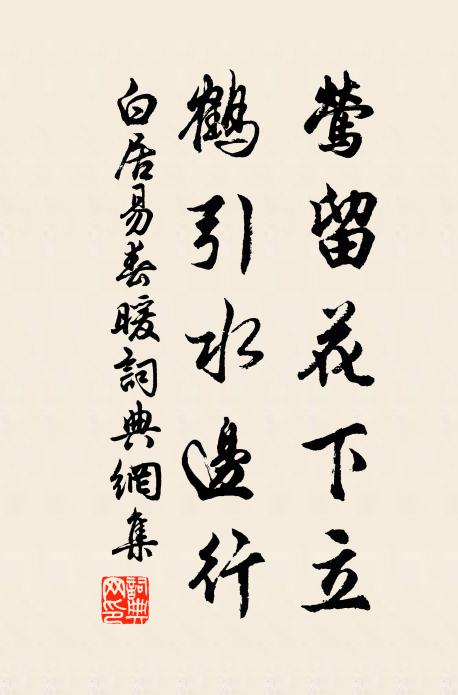 鶯留花下立
鶴引水邊行
白居易春暖詞典網集
詞典網印